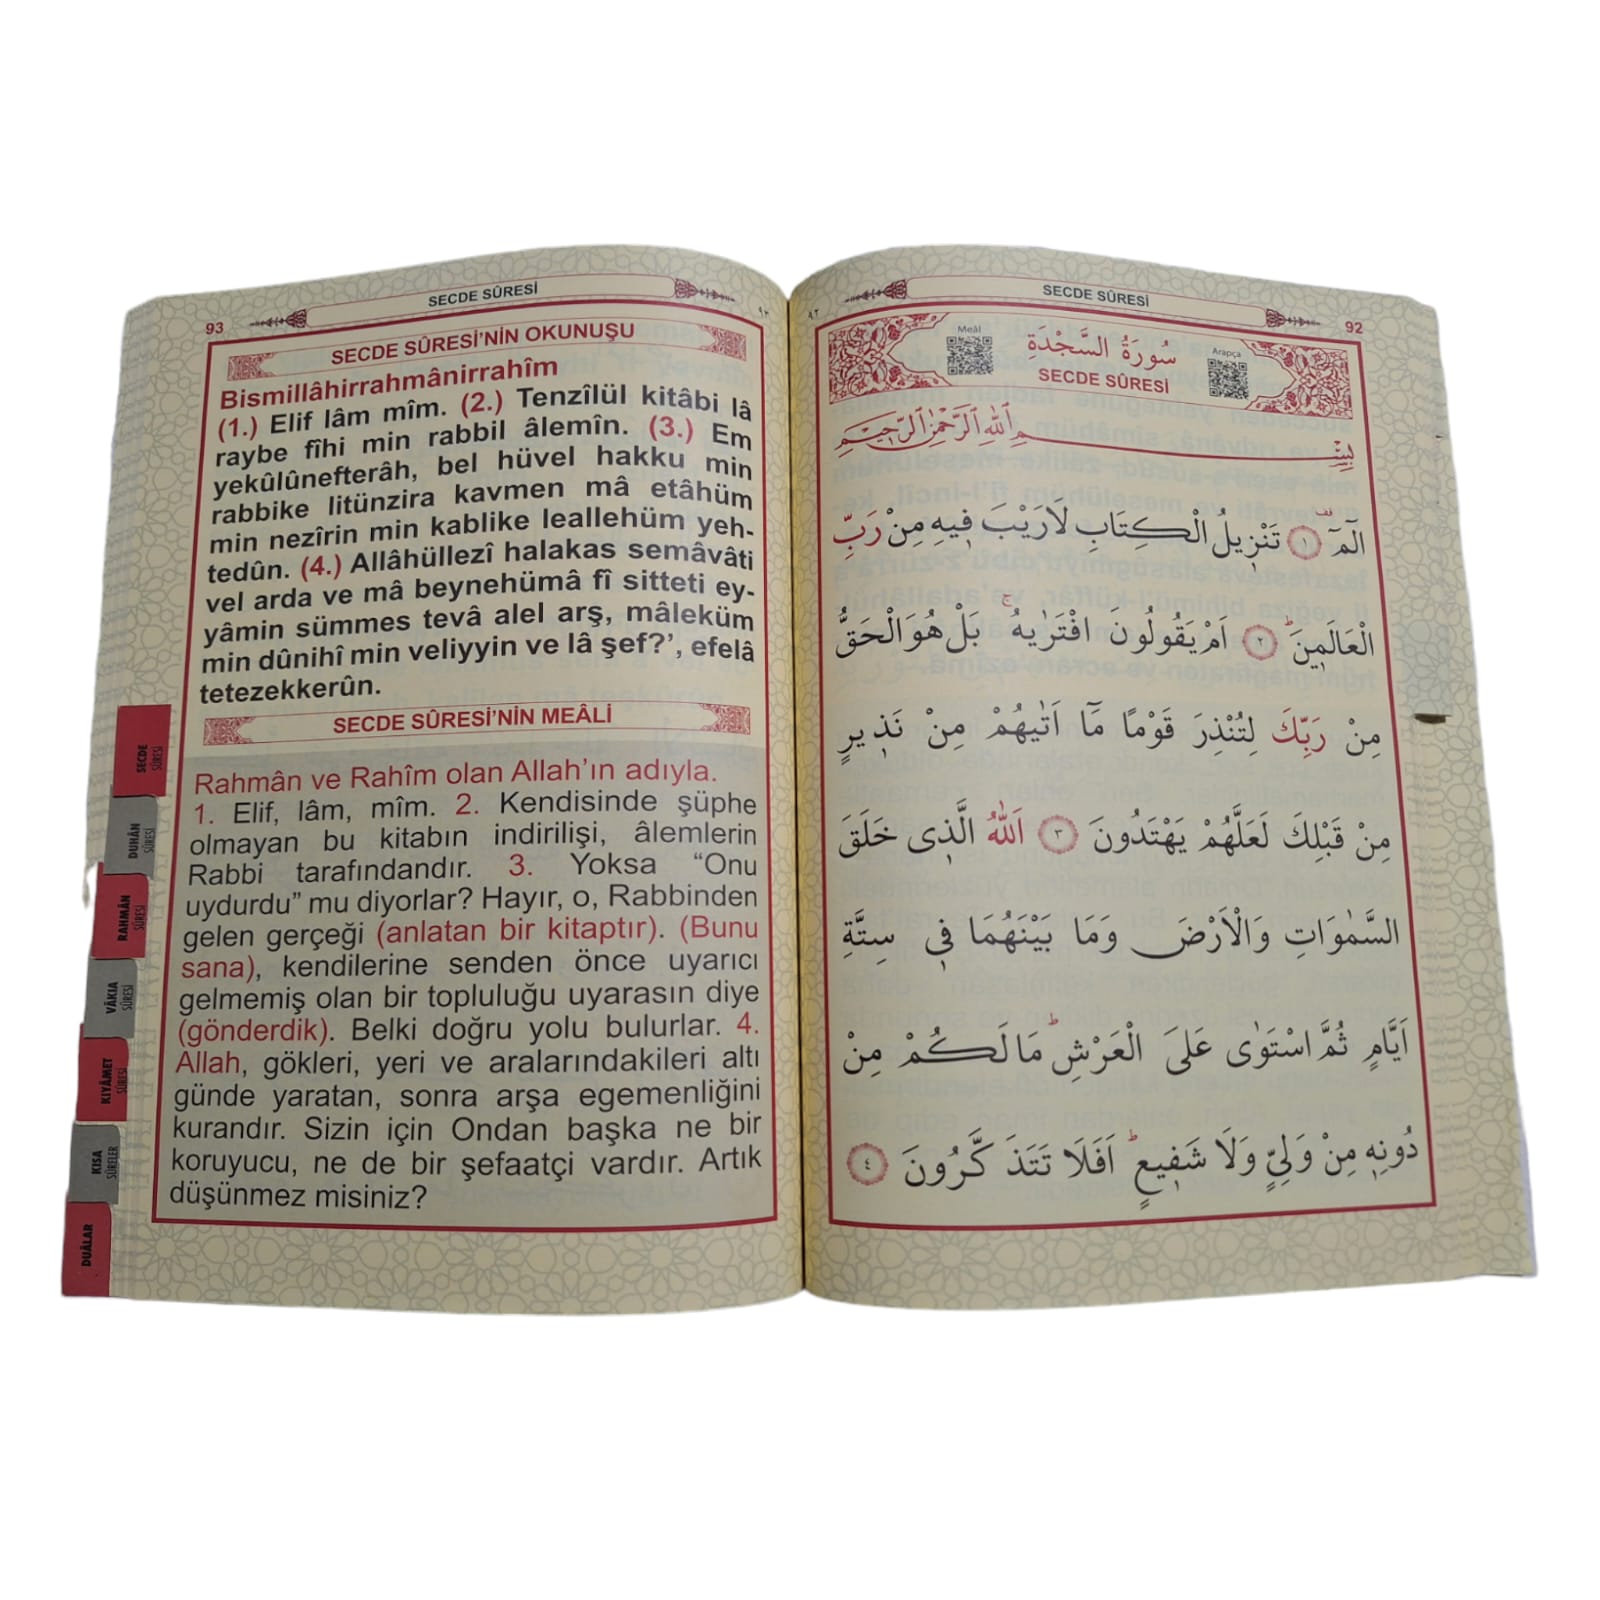 SECDE SÛRESİ
93
٩٣
SECDE SÛRESİ'NİN OKUNUŞU
Bismillâhirrahmânirrahîm
(1.) Elif lâm mîm. (2.) Tenzîlül kitâbi lâ
raybe fîhi min rabbil âlemîn. (3.) Em
yekûlûnefterâh, bel hüvel hakku min
rabbike litünzira kavmen mâ etâhüm
min nezîrin min kablike leallehüm yeh-
tedûn. (4.) Allâhüllezî halakas semâvâti
vel arda ve mâ beynehümâ fî sitteti ey-
yâmin sümmes tevâ alel arş, mâleküm
min dûnihî min veliyyin ve lâ şef?', efelâ
tetezekkerûn.
SECDE SÛRESİ'NİN MEÂLİ
Rahmân ve Rahîm olan Allah'ın adıyla.
1. Elif, lâm, mîm. 2. Kendisinde şüphe
olmayan bu kitabın indirilişi, âlemlerin
Rabbi tarafındandır. 3. Yoksa “Onu
uydurdu” mu diyorlar? Hayır, o, Rabbinden
gelen gerçeği (anlatan bir kitaptır). (Bunu
sana), kendilerine senden önce uyarıcı
gelmemiş olan bir topluluğu uyarasın diye
(gönderdik). Belki doğru yolu bulurlar. 4.
Allah, gökleri, yeri ve aralarındakileri altı
günde yaratan, sonra arşa egemenliğini
kurandır. Sizin için Ondan başka ne bir
koruyucu, ne de bir şefaatçi vardır. Artık
düşünmez misiniz?
SECDE SÛRESİ
DUHÂN SÛRESİ
RAHMÂN SÛRESİ
VÂKIA SÛRESİ
KIYÂMET SÛRESİ
KISA SÛRELER
DUÂLAR
SECDE SÛRESİ
92
٩٢
Meâl
سُورَةُ السَّجْدَةِ
Arapça
SECDE SÛRESİ
بِسْمِ اللّٰهِ الرَّحْمٰنِ الرَّحٖيمِ
الٓمٓ ۚ ﴿١﴾ تَنْزٖيلُ الْكِتَابِ لَا رَيْبَ فٖيهِ مِنْ رَبِّ
الْعَالَمٖينَۜ ﴿٢﴾ اَمْ يَقُولُونَ افْتَرٰيهُۚ بَلْ هُوَ الْحَقُّ
مِنْ رَبِّكَ لِتُنْذِرَ قَوْمًا مَٓا اَتٰيهُمْ مِنْ نَذٖيرٍ
مِنْ قَبْلِكَ لَعَلَّهُمْ يَهْتَدُونَ ﴿٣﴾ اَللّٰهُ الَّذٖى خَلَقَ
السَّمٰوَاتِ وَالْاَرْضَ وَمَا بَيْنَهُمَا فٖى سِتَّةِ
اَيَّامٍ ثُمَّ اسْتَوٰى عَلَى الْعَرْشِۜ مَا لَكُمْ مِنْ
دُونِهٖ مِنْ وَلِيٍّ وَلَا شَفٖيعٍۜ اَفَلَا تَتَذَكَّرُونَ ﴿٤﴾